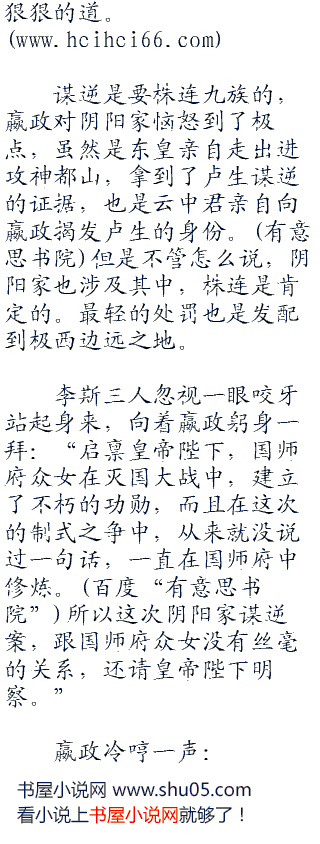 狠狠的道。
(www.hcihci66.com)
谋逆是要株连九族的，
嬴政对阴阳家恼怒到了极
点，虽然是东皇亲自走出进
攻神都山，拿到了卢生谋逆
的证据，也是云中君亲自向
嬴政揭发卢生的身份。(有意
思书院)但是不管怎么说，阴
阳家也涉及其中，株连是肯
定的。最轻的处罚也是发配
到极西边远之地。
李斯三人忽视一眼咬牙
站起身来，向着嬴政躬身一
拜：“启禀皇帝陛下，国师
府众女在灭国大战中，建立
了不朽的功勋，而且在这次
的制式之争中，从来就没说
过一句话，一直在国师府中
修炼。(百度“有意思书
院”)所以这次阴阳家谋逆
案，跟国师府众女没有丝毫
的关系，还请皇帝陛下明
察。”
嬴政冷哼一声：
书屋小说网 www.shu05.com
看小说上书屋小说网就够了！